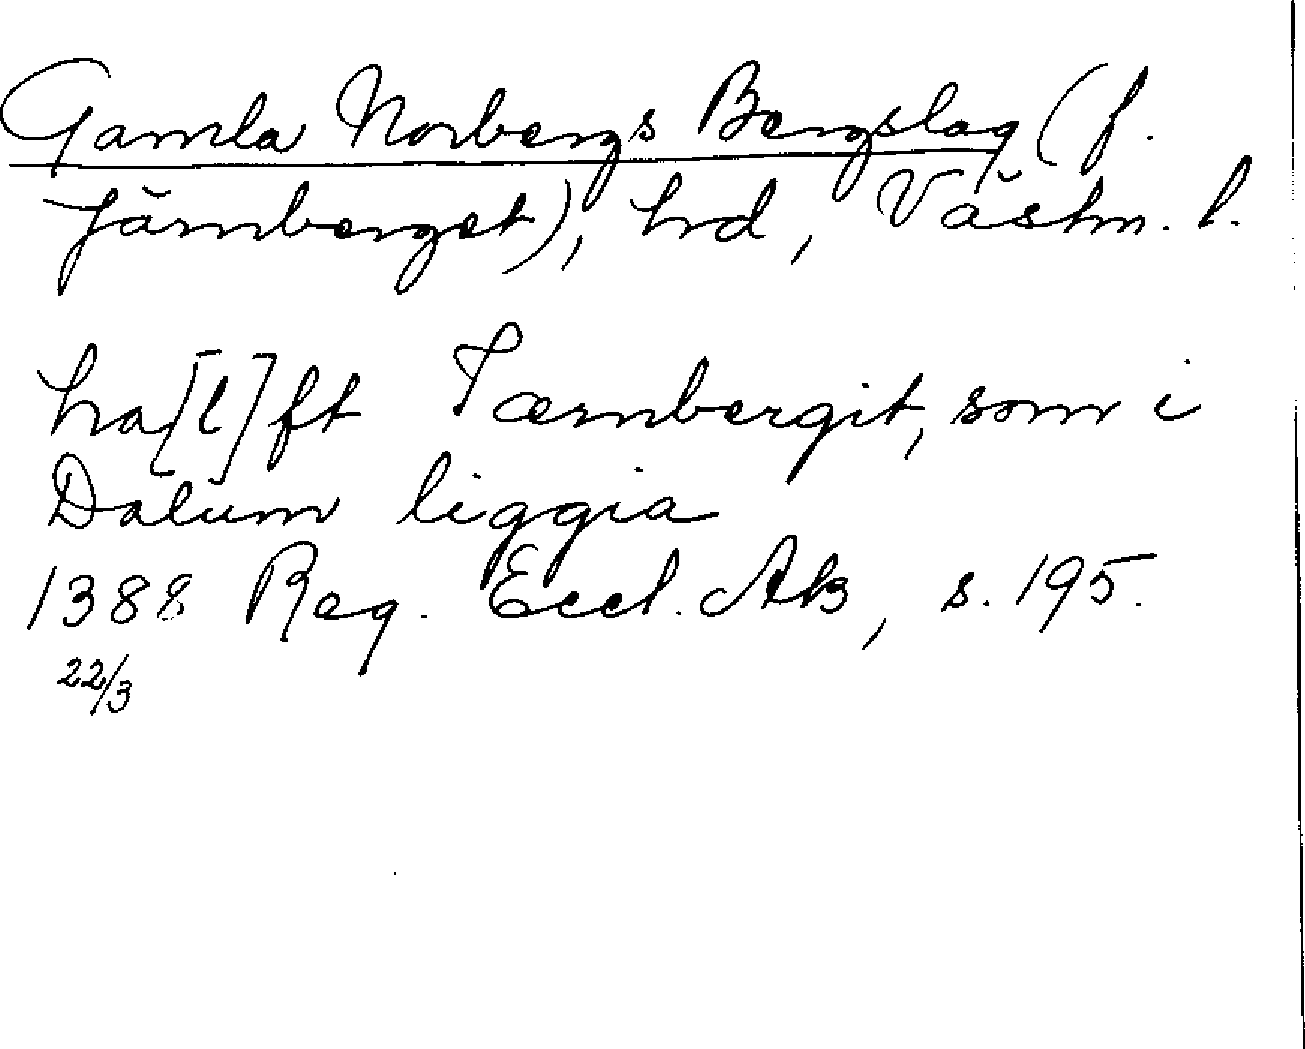 Gamla Norbergs Bergslag (f.
Järnberget), hd, Västm. l.
ha[l]ft Iærnbergit, som i
Dalum liggia
1388 Reg. Eccl. Ak, s. 195.
22/3